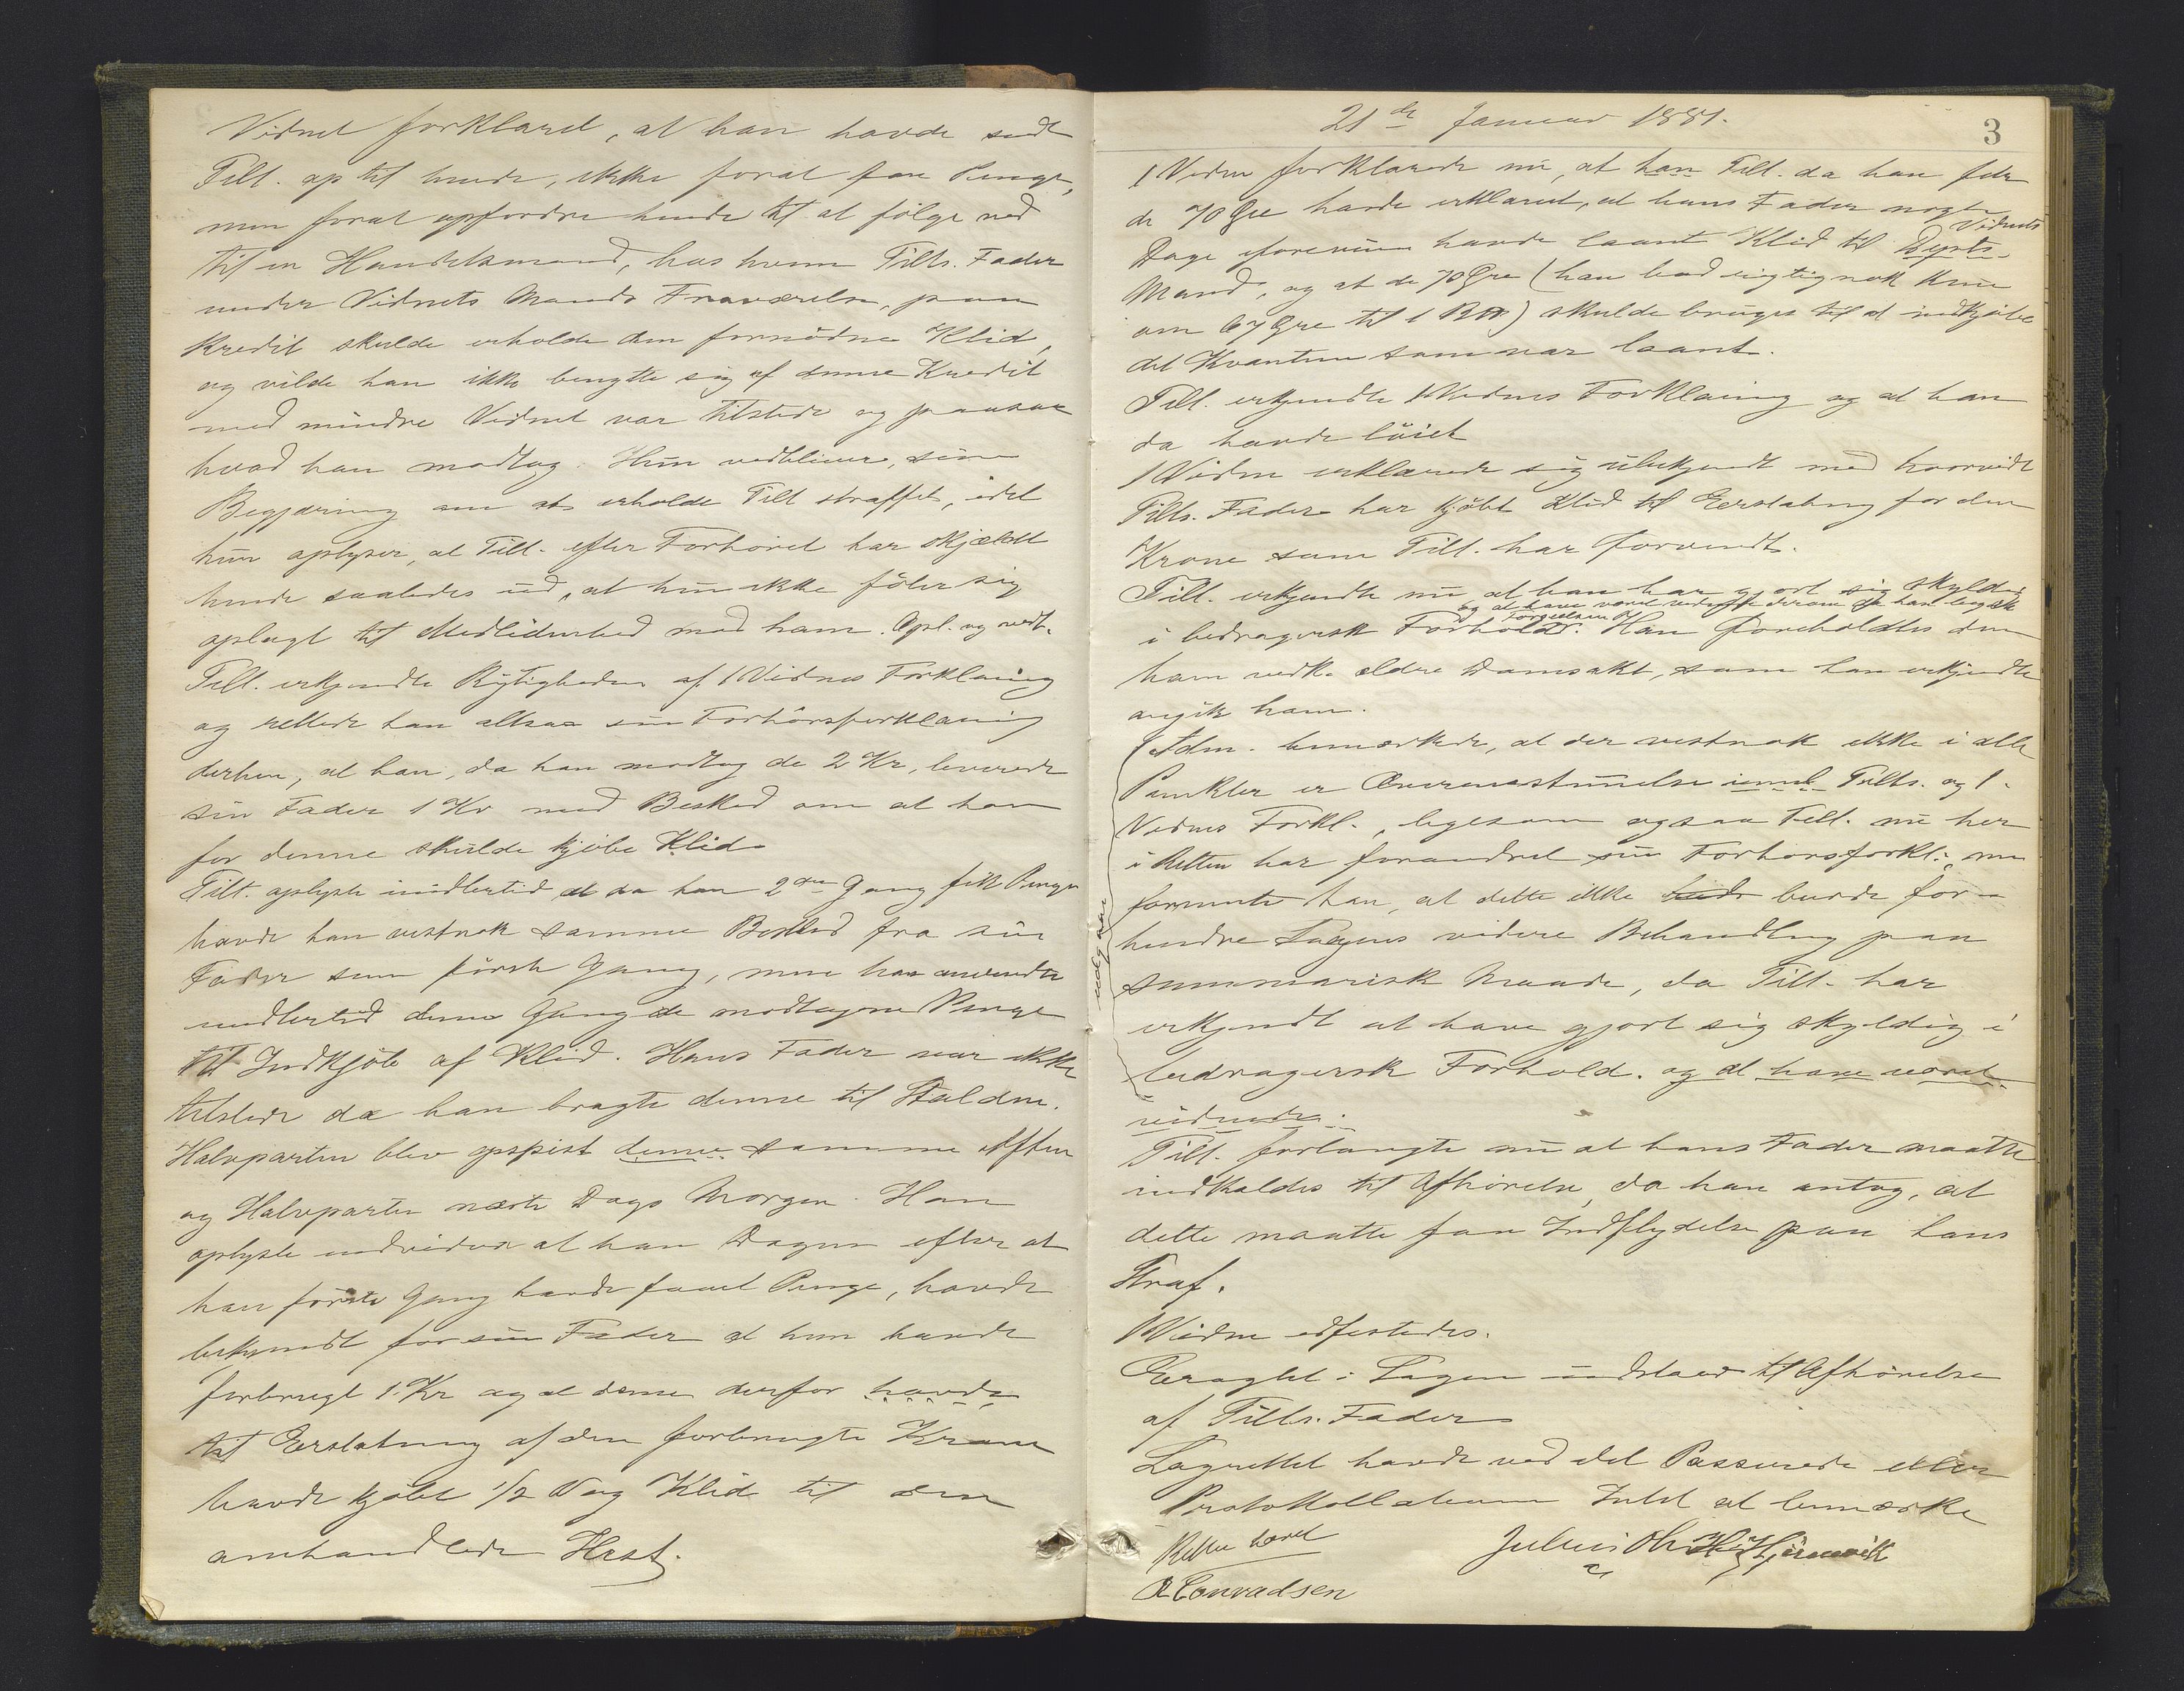 Vidnet forklared, at han havde sedt
Tilt. op til hende, ikke forat faa Penge,
men forat opfordre hende til at følge ned
til en Handelsmand, hos hvem Tilts. Fader
under Vidnets Mands Fraværelse, paa
Kredit skulde erholde den fornødne Klid,
og vilde han ikke benytte sig af denne Kredit
med mindre Vidnet var tilstede og paasaa
hvad han modtog. Hun vedbliver, sin
Begjæring om at erholde Tilt straffet, idet
hun oplyser, at Tilt. efter Forhøret har skjældt
hende saaledes ud, at hun ikke føler sig
oplagt til Medlidenhed med ham. Opl. og vedt.
Tilt. erkjendte Rigtigheden af 1 Vidnes Forklaring
og rettede han altsaa sin Forhørsforklaring
derhen, at han, da han modtog de 2 Kr, leverede
sin Fader 1 Kr med Besked om at han
for denne skulde kjøbe Klid.
Tilt. oplyste imidlertid at da han 2den Gang fik Penge
havde han vistnok samme Besked fra sin
Fader som første Gang, men han anvendte
imidlertid denne Gang de modtagne Penge
til Indkjøb af Klid. Hans Fader var ikke
tilstede da han bragte denne til Stalden.
Halvparten blev opspist denne samme Aften
og Halvparten næste Dags Morgen. Han
oplyste endvidere at han Dagen efter at
han første Gang havde faaet Penge, havde
bekjendt for sin Fader at han havde
forbrugt 1 Kr og at denne derfor havde
til Erstatning af den forbrugte Krone
havde kjøbt 1/2 Vog Klid til den
omhandlede Hest.
21de Januar 1881.
3
1 Vidne forklarede nu, at han Tilt. da han fik
de 70 Øre havde erklæret, at hans Fader nogle
Vidnets
Dage forinden havde laant Klid til Dyrts.
Mand, og at de 70 Øre (han bad rigtignok kun
om 67 Øre til 1 B℔) skulde bruges til at indkjøbe
det Kvantum som var laant.
Tilt. erkjendte 1 Vidnes Forklaring og at han
da havde løiet
1 Vidne erklærede sig ubekjendt med hvorvidt
Tilts. Fader har kjøbt Klid til Erstatning for den
Krone som Tilt. har forvendt.
Tilt. erkjendte nu at han har gjort sig skyldig
og at have været vidende derom da han begik
Forseelsen
i bedragersk Forhold. Han foreholdtes den
ham vedk. ældre Domsakt, som han erkjendte
angik ham.
Adm. bemærkede, at der vistnok ikke i alle
Punkter er Overensstemmelse imel. Tilts. og 1.
Vidnes Forkl., ligesom ogsaa Tilt. nu her
i Retten har forandret sin Forhørsforkl., men
formente han, at dette ikke burde for-
hindre Sagens videre Behandling paa
summarisk Maade, da Tilt. har
erkjendt at have gjort sig skyldig i
bedragersk Forhold. og at have været
vidende.
udgaar
Tilt. forlangte nu at hans Fader maatte
indkaldes til Afhørelse, da han antog, at
dette maatte faa Indflydelse paa hans
Straf.
1 Vidne edfestedes.
Eragtet: Sagen udstaar til Afhørelse
af Tilts. Fader
Lagrettet havde ved det Passerede eller
Protokollationen Intet at bemærke
Retten hævet
Julius Hjörnevik
A Conradsen